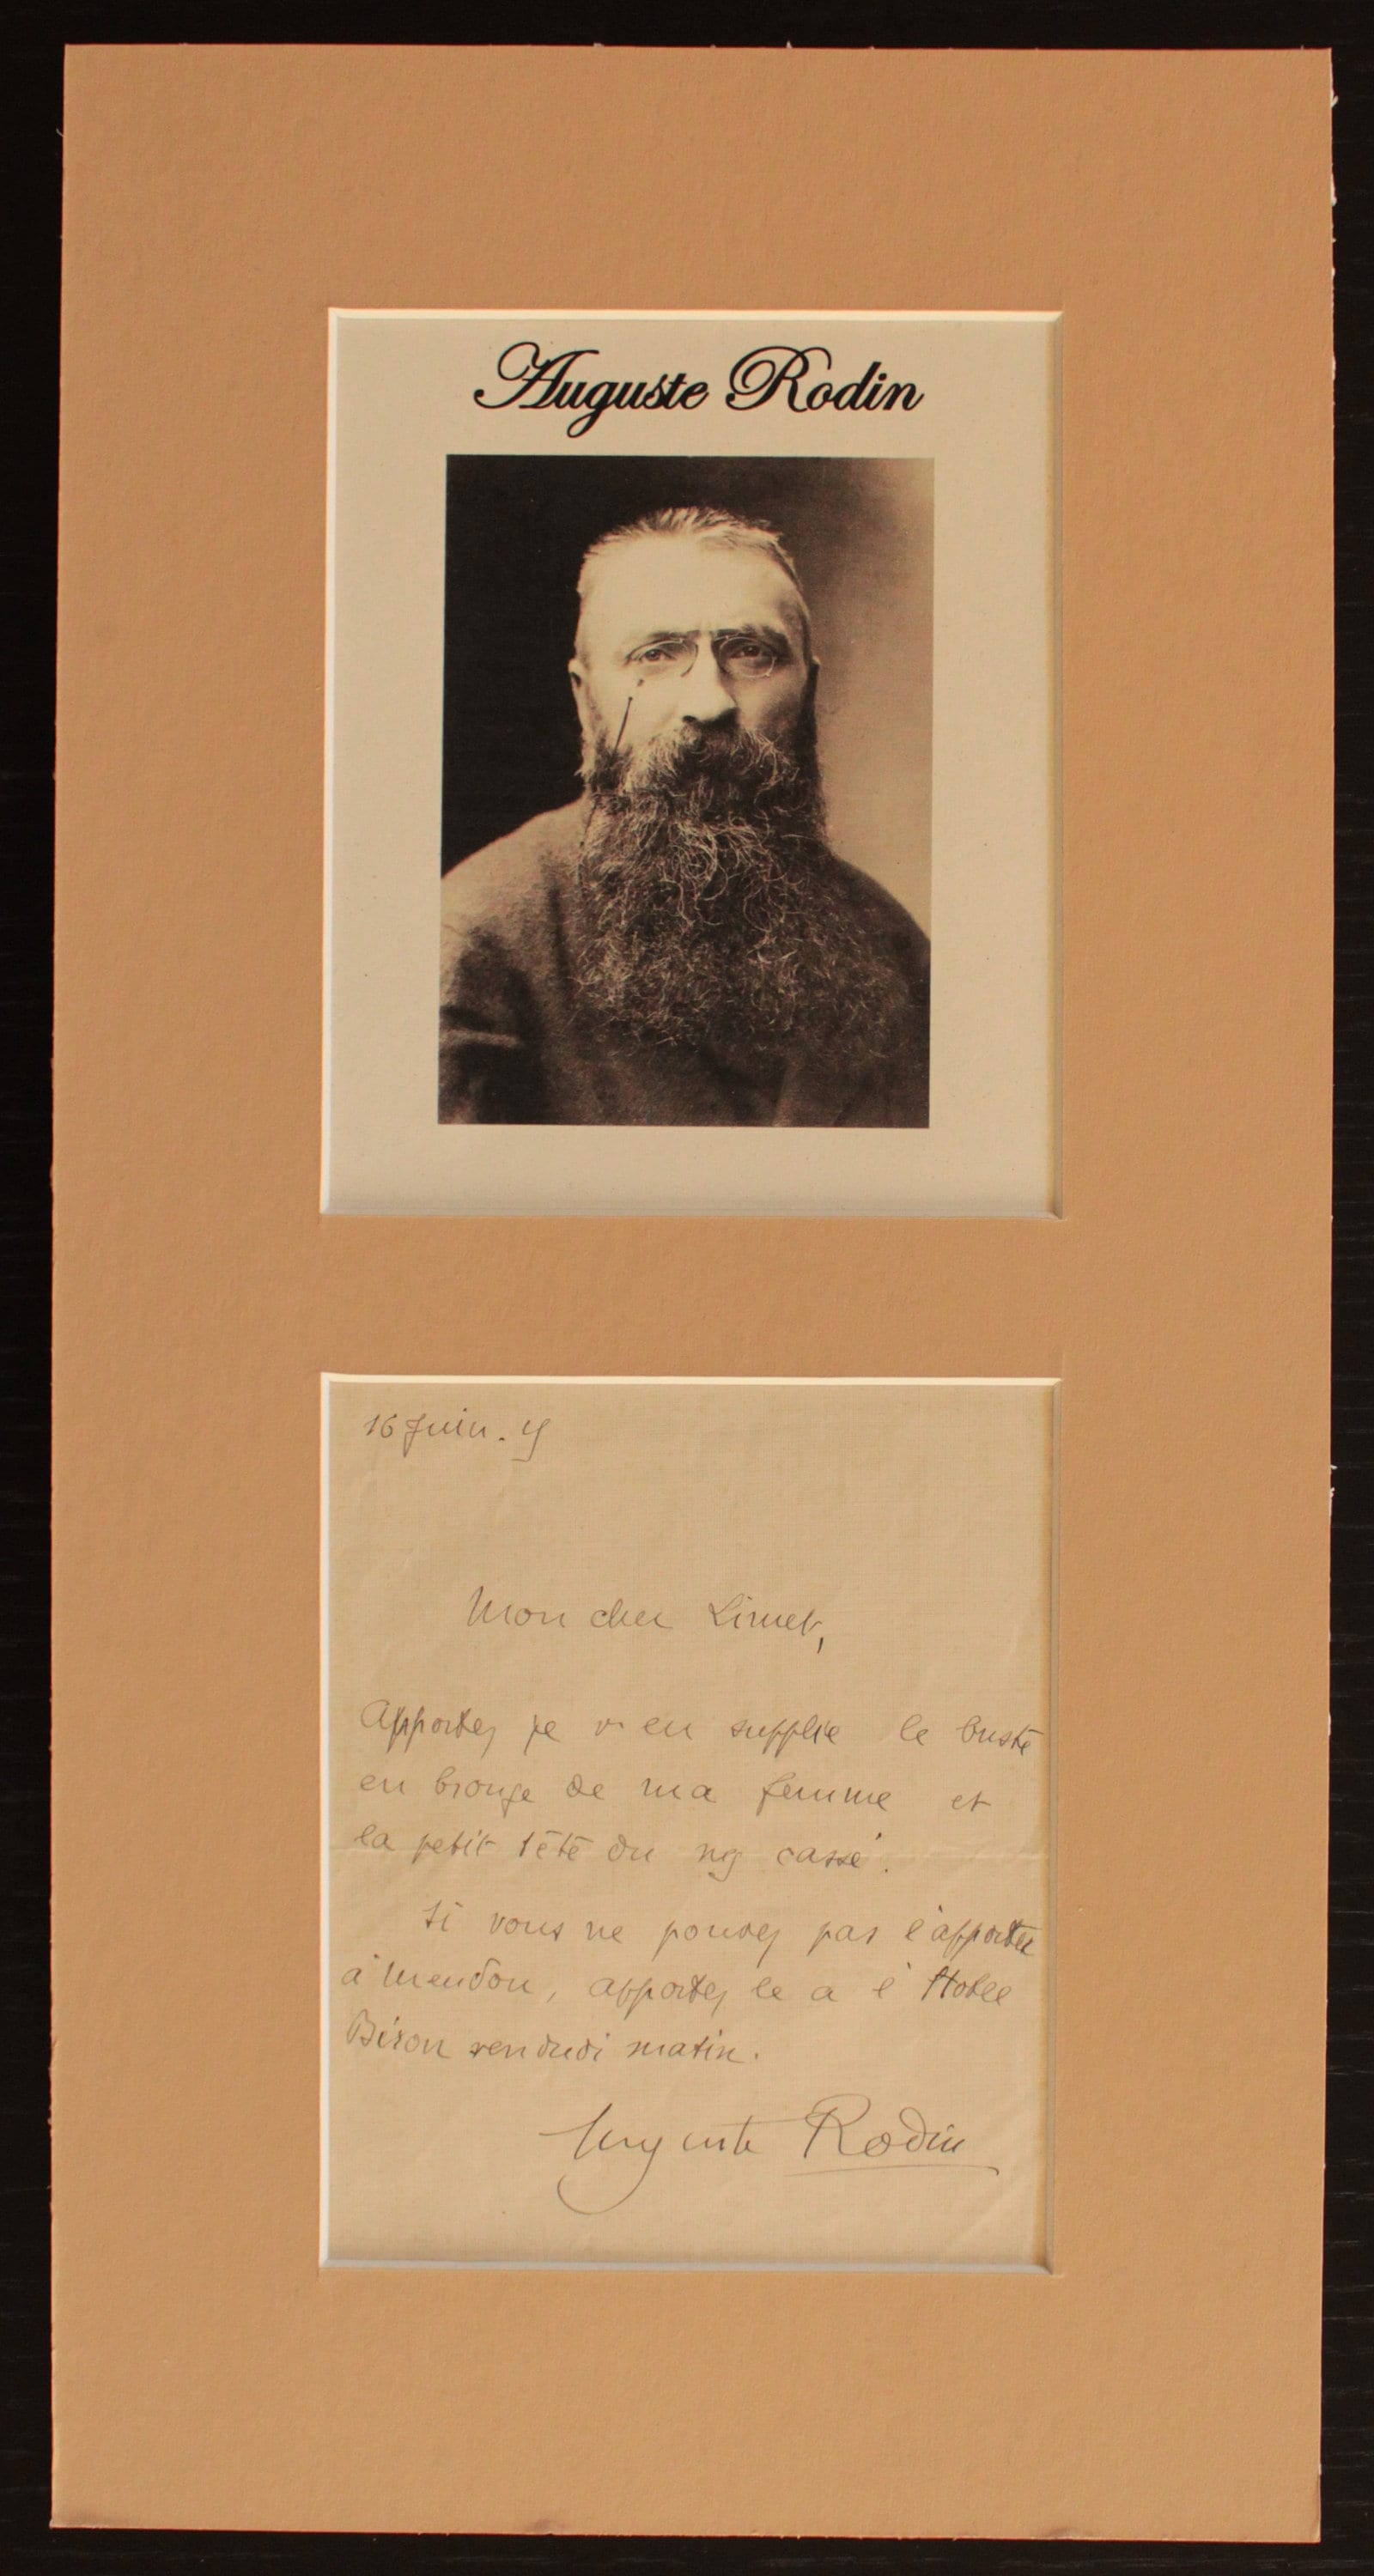 Auguste Rodin
16 Juin.
Mon cher Limet,
Apportez je v en supplie le buste
en bronze de ma femme et
la petit tête du nez cassé.
Si vous ne pouvez pas l'apporter
à Meudon, apportez le a l'Hotel
Biron vendredi matin.
Auguste Rodin